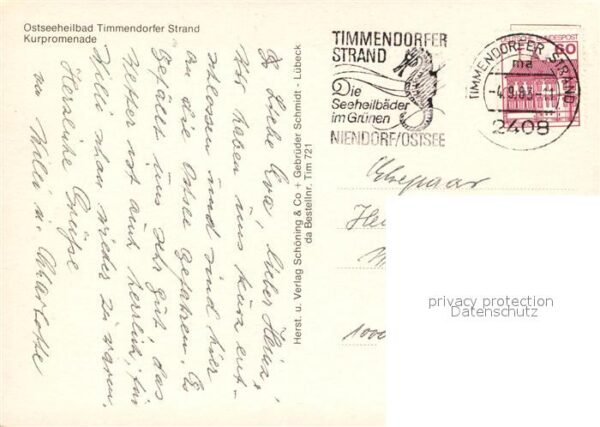 Ostseeheilbad Timmendorfer Strand
Kurpromenade
Liebe Eva, lieber Heinz,
Wir haben uns kurz ent-
schlossen und sind hier
an die Ostsee gefahren. Es
gefällt uns sehr gut, das
Wetter ist auch herrlich, für
Willi mal wieder zu warm.
Herzliche Grüße
Willi u. Charlotte
Herst. u. Verlag Schöning & Co + Gebrüder Schmidt - Lübeck
da Bestellnr. Tim 721
TIMMENDORFER
STRAND
Die
Seeheilbäder
im Grünen
NIENDORF/OSTSEE
TIMMENDORFER STRAND
ma
-4.9.83-
2408
BUNDESPOST
60
Ehepaar
1000
privacy protection
Datenschutz